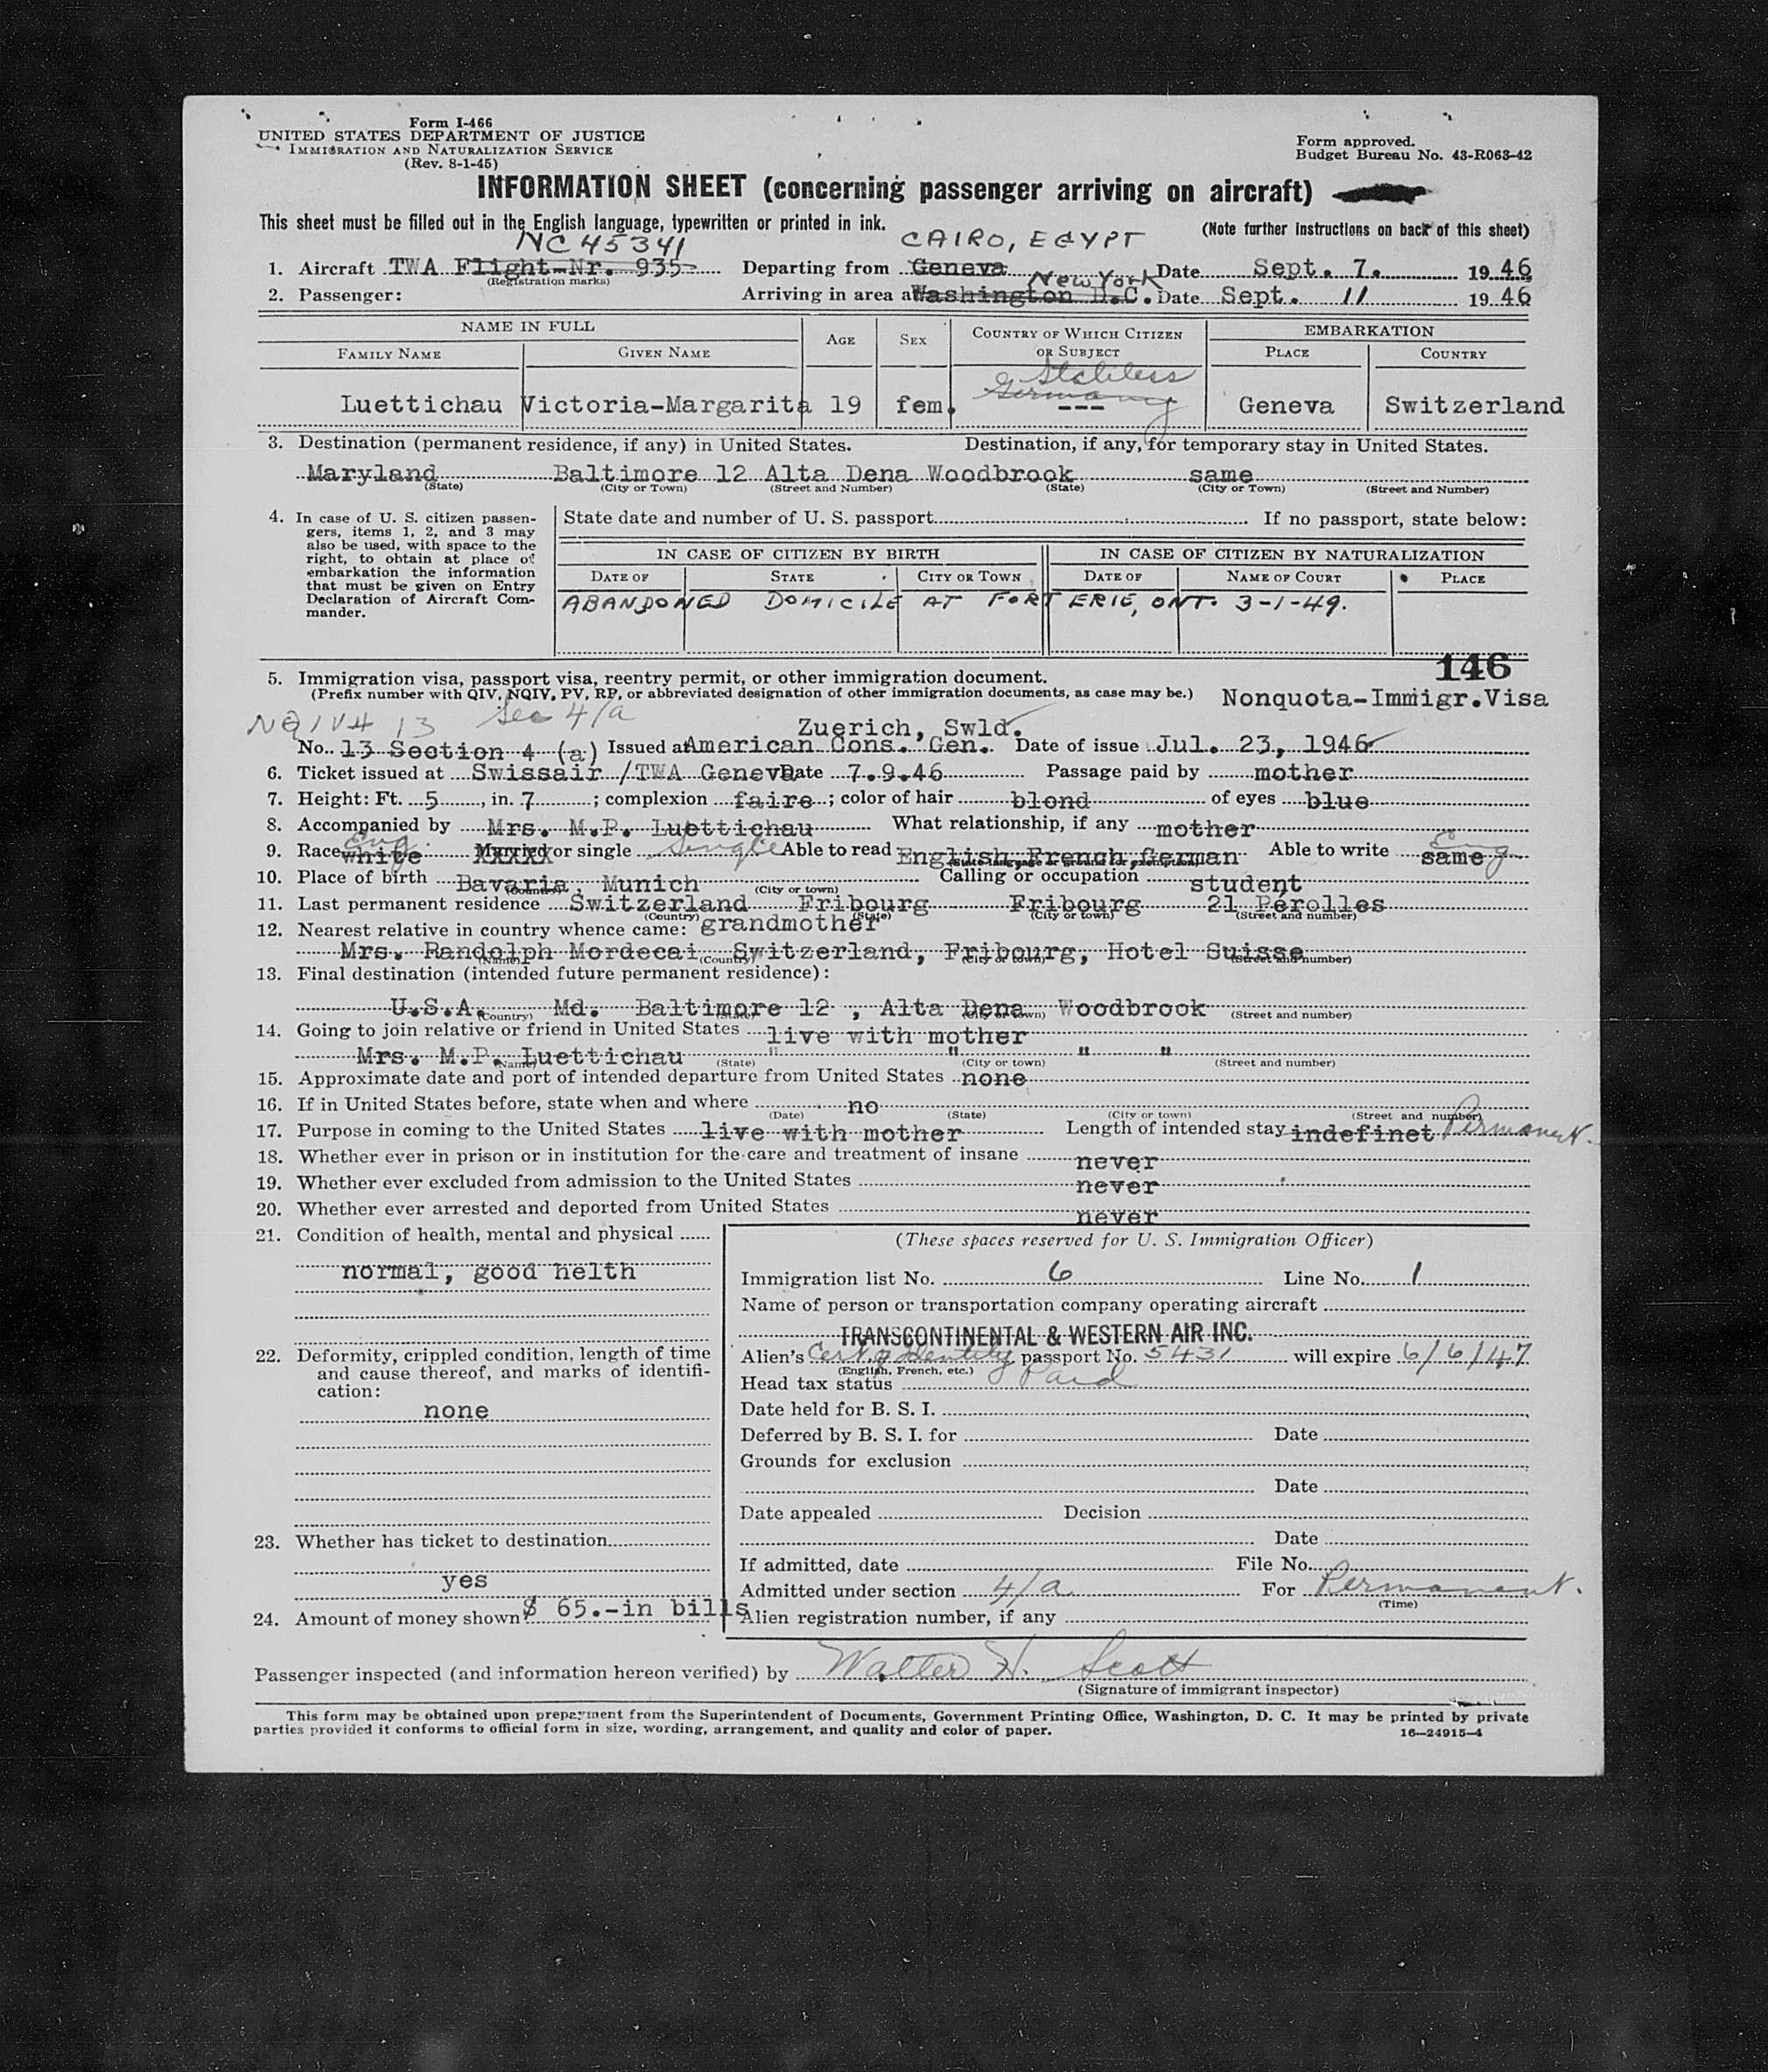 Form I-466
UNITED STATES DEPARTMENT OF JUSTICE
IMMIGRATION AND NATURALIZATION SERVICE
(Rev. 8-1-45)
Form approved.
Budget Bureau No. 43-R063-42
INFORMATION SHEET (concerning passenger arriving on aircraft)
This sheet must be filled out in the English language, typewritten or printed in ink.
(Note further instructions on back of this sheet)
NC 45341 CAIRO, EGYPT
1. Aircraft TWA Flight-Nr. 935 Departing from Geneva Date Sept. 7. 19 46
(Registration marks) New York
2. Passenger: Arriving in area at Washington D.C. Date Sept. 11 19 46
NAME IN FULL AGE SEX COUNTRY OF WHICH CITIZEN OR SUBJECT EMBARKATION
FAMILY NAME GIVEN NAME PLACE COUNTRY
Stateless
Germany
Luettichau Victoria-Margarita 19 fem. --- Geneva Switzerland
3. Destination (permanent residence, if any) in United States. Destination, if any, for temporary stay in United States.
Maryland Baltimore 12 Alta Dena Woodbrook same
(State) (City or Town) (Street and Number) (State) (City or Town) (Street and Number)
4. In case of U. S. citizen passengers, items 1, 2, and 3 may also be used, with space to the right, to obtain at place of embarkation the information that must be given on Entry Declaration of Aircraft Commander.
State date and number of U. S. passport If no passport, state below:
IN CASE OF CITIZEN BY BIRTH IN CASE OF CITIZEN BY NATURALIZATION
DATE OF STATE CITY OR TOWN DATE OF NAME OF COURT PLACE
ABANDONED DOMICILE AT FORT ERIE, ONT. 3-1-49.
146
5. Immigration visa, passport visa, reentry permit, or other immigration document.
(Prefix number with QIV, NQIV, PV, RP, or abbreviated designation of other immigration documents, as case may be.) Nonquota-Immigr.Visa
NQIV# 13 Sec 4/a
Zuerich, Swld.
No. 13 Section 4 (a) Issued at American Cons. Gen. Date of issue Jul. 23, 1946
6. Ticket issued at Swissair /TWA Geneva Date 7.9.46 Passage paid by mother
7. Height: Ft. 5, in. 7; complexion faire; color of hair blond of eyes blue
8. Accompanied by Mrs. M.P. Luettichau What relationship, if any mother
Eng. Eng
9. Race white Married or single Single Able to read English French German Able to write same
(State language or ground for exemption)
10. Place of birth Bavaria, Munich Calling or occupation student
(Country) (City or town)
11. Last permanent residence Switzerland Fribourg Fribourg 21 Pérolles
(Country) (State) (City or town) (Street and number)
12. Nearest relative in country whence came: grandmother
Mrs. Randolph Mordecai Switzerland, Fribourg, Hotel Suisse
(Name) (Country) (City or town) (Street and number)
13. Final destination (intended future permanent residence):
U.S.A. Md. Baltimore 12 , Alta Dena Woodbrook
(Country) (State) (City or town) (Street and number)
14. Going to join relative or friend in United States live with mother
Mrs. M.P. Luettichau " " " "
(Name) (State) (City or town) (Street and number)
15. Approximate date and port of intended departure from United States none
16. If in United States before, state when and where no
(Date) (State) (City or town) (Street and number)
17. Purpose in coming to the United States live with mother Length of intended stay indefinet Permanent.
18. Whether ever in prison or in institution for the care and treatment of insane never
19. Whether ever excluded from admission to the United States never
20. Whether ever arrested and deported from United States never
21. Condition of health, mental and physical
normal, good helth
22. Deformity, crippled condition, length of time and cause thereof, and marks of identification:
none
23. Whether has ticket to destination
yes
24. Amount of money shown $ 65.-in bills
(These spaces reserved for U. S. Immigration Officer)
Immigration list No. 6 Line No. 1
Name of person or transportation company operating aircraft
TRANSCONTINENTAL & WESTERN AIR INC.
Alien's Cert. of Identity passport No. 5431 will expire 6/6/47
(English, French, etc.)
Head tax status Paid
Date held for B. S. I.
Deferred by B. S. I. for Date
Grounds for exclusion
Date
Date appealed Decision
Date
If admitted, date File No.
Admitted under section 4/a For Permanent.
(Time)
Alien registration number, if any
Passenger inspected (and information hereon verified) by Walter H. Scott
(Signature of immigrant inspector)
This form may be obtained upon prepayment from the Superintendent of Documents, Government Printing Office, Washington, D. C. It may be printed by private
parties provided it conforms to official form in size, wording, arrangement, and quality and color of paper. 16—24915-4